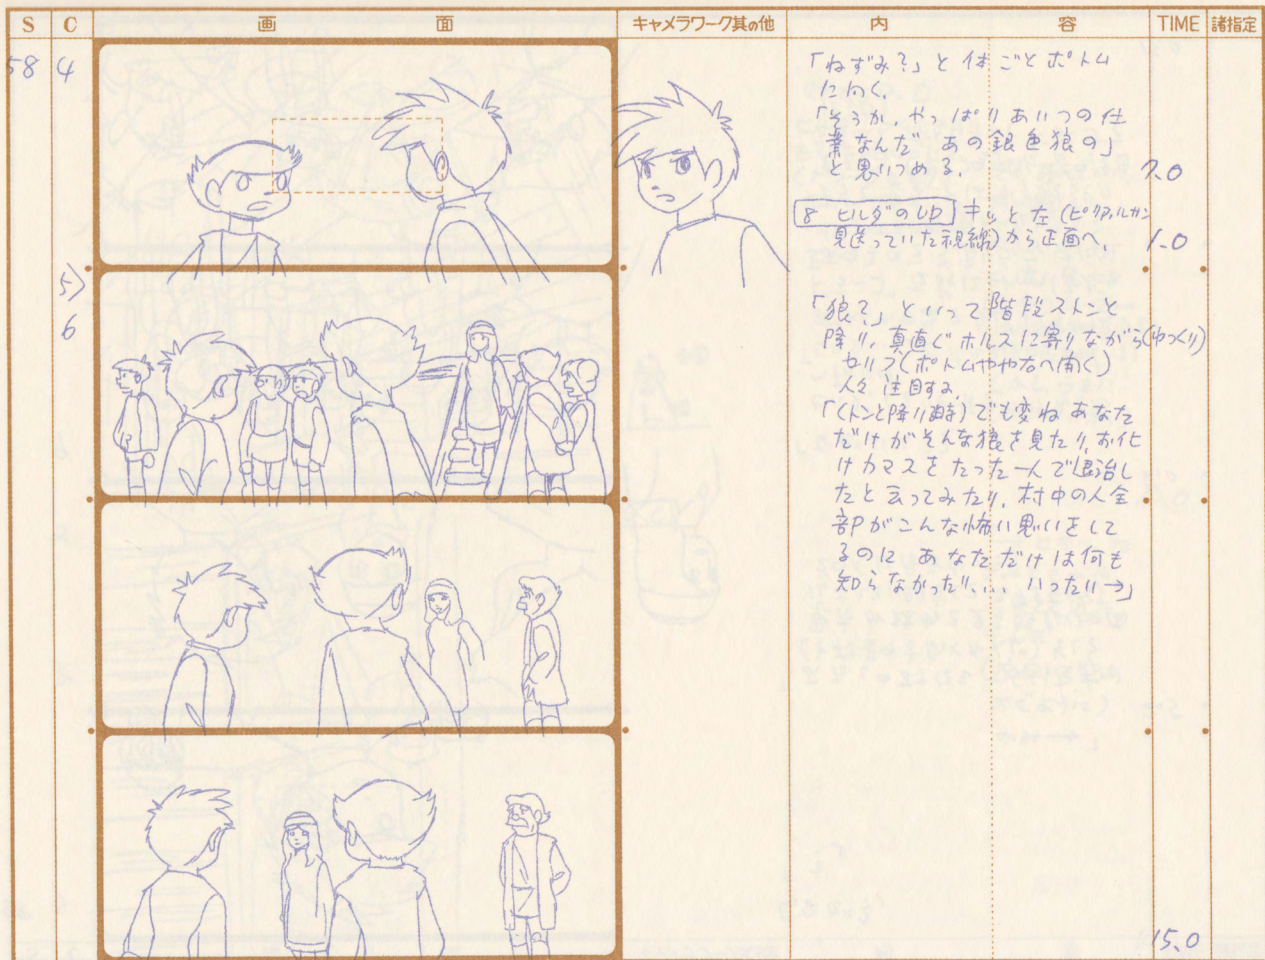 S C 画面 キャメラワーク其の他 内容 TIME 諸指定
58 4
「ねずみ?」と体ごとポトム
に向く、
「そうか、やっぱりあいつの仕
業なんだ あの銀色狼の」
と思いつめる. 7.0
8 ヒルダのUP キッと左(ピリアルガン
見送っていた視線)から正面へ、 1.0
5〉
6
「狼?」といって階段ストンと
降り、真直ぐホルスに寄りながら(ゆっくり)
セリフ(ポトムやや右へ開く)
人々注目する
「(トンと降り乍)でも変ねあなた
だけがそんな狼を見たり、お化
けカマスをたった一人で退治し
たと云ってみたり、村中の人全
部がこんな怖い思いをして
るのに あなただけは何も
知らなかった、… いったい→」
15.0